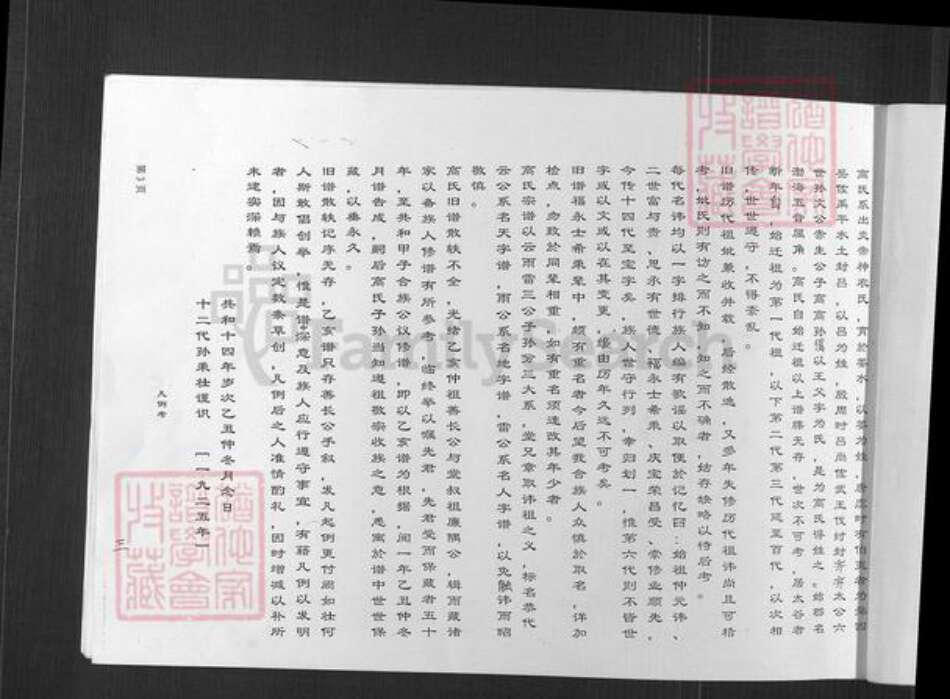 高氏系出炎帝神农氏，育於姜水，以姜为姓，唐虞时有伯夷者为掌四
岳佐禹平水土封吕，以吕为姓，殷周时吕尚佐武王伐纣封齐有太公六
世孙文公赤生公子高高孙傒以王父字为氏，是为高氏得姓之始郡名
渤海五音属角。高氏自始迁祖以上谱牒无存，世次不可考，居太谷者
新年前，始迁祖为第一代祖，以下第二代第三代延至百代，以次相
传，世世遵守，不得紊乱。
旧谱历代祖妣兼收并载，后经散逸，又多年失修历代祖讳尚且可稽
考，妣氏则有访之而不知，知之而不确者，姑存缺略以待后考。
每代名讳均以一字排行族人编有歌谣以取便於记忆曰：始祖仲元讳、
二世富与贵、思永有世德、福永士希秉、庆宝荣昌受、常修业顺先，
今传十四代至宝字矣，族人世守行列，幸归划一，惟第六代则不皆世
字或以文或以在其变更，缘由历年久远不可考矣。
旧谱福永士希秉辈中，颇有重名者今后望我合族人众慎於取名，详加
检点，勿致於同辈相重，如有重名须速改其年少者。
高氏宗谱以云雨雷三公子孙分三大系，堂兄章取讳祖之义，标名恭代
云公系名天字谱，雨公系名地字谱，雷公系名人字谱，以免触讳而昭
敬慎。
高氏旧谱散轶不全，光绪乙亥仲祖善长公与堂叔祖廉隅公，辑而藏诸
家以备族人修谱有所参考，临终举以嘱先君，先君受而保藏者五十
年，至共和甲子合族公议修谱，即以乙亥谱为根据，阅一年乙丑仲冬
月谱告成，嗣后高氏子孙当知遵祖敬宗收族之意，悉寓於谱中世世保
藏，以垂永久。
旧谱散轶记序无存，乙亥谱只存善长公手叙，发凡起例更付阙如壮何
人斯敢倡创举，惟是谱中深意及族人应行遵守事宜，有藉凡例以发明
者，因与族人议定数条草创，凡例后之人准情酌礼，因时增减以补所
未逮实深赖焉。
共和十四年岁次乙丑仲冬月念日
十二代孙秉壮谨识 [一九二五年]
凡例考
第3页
三